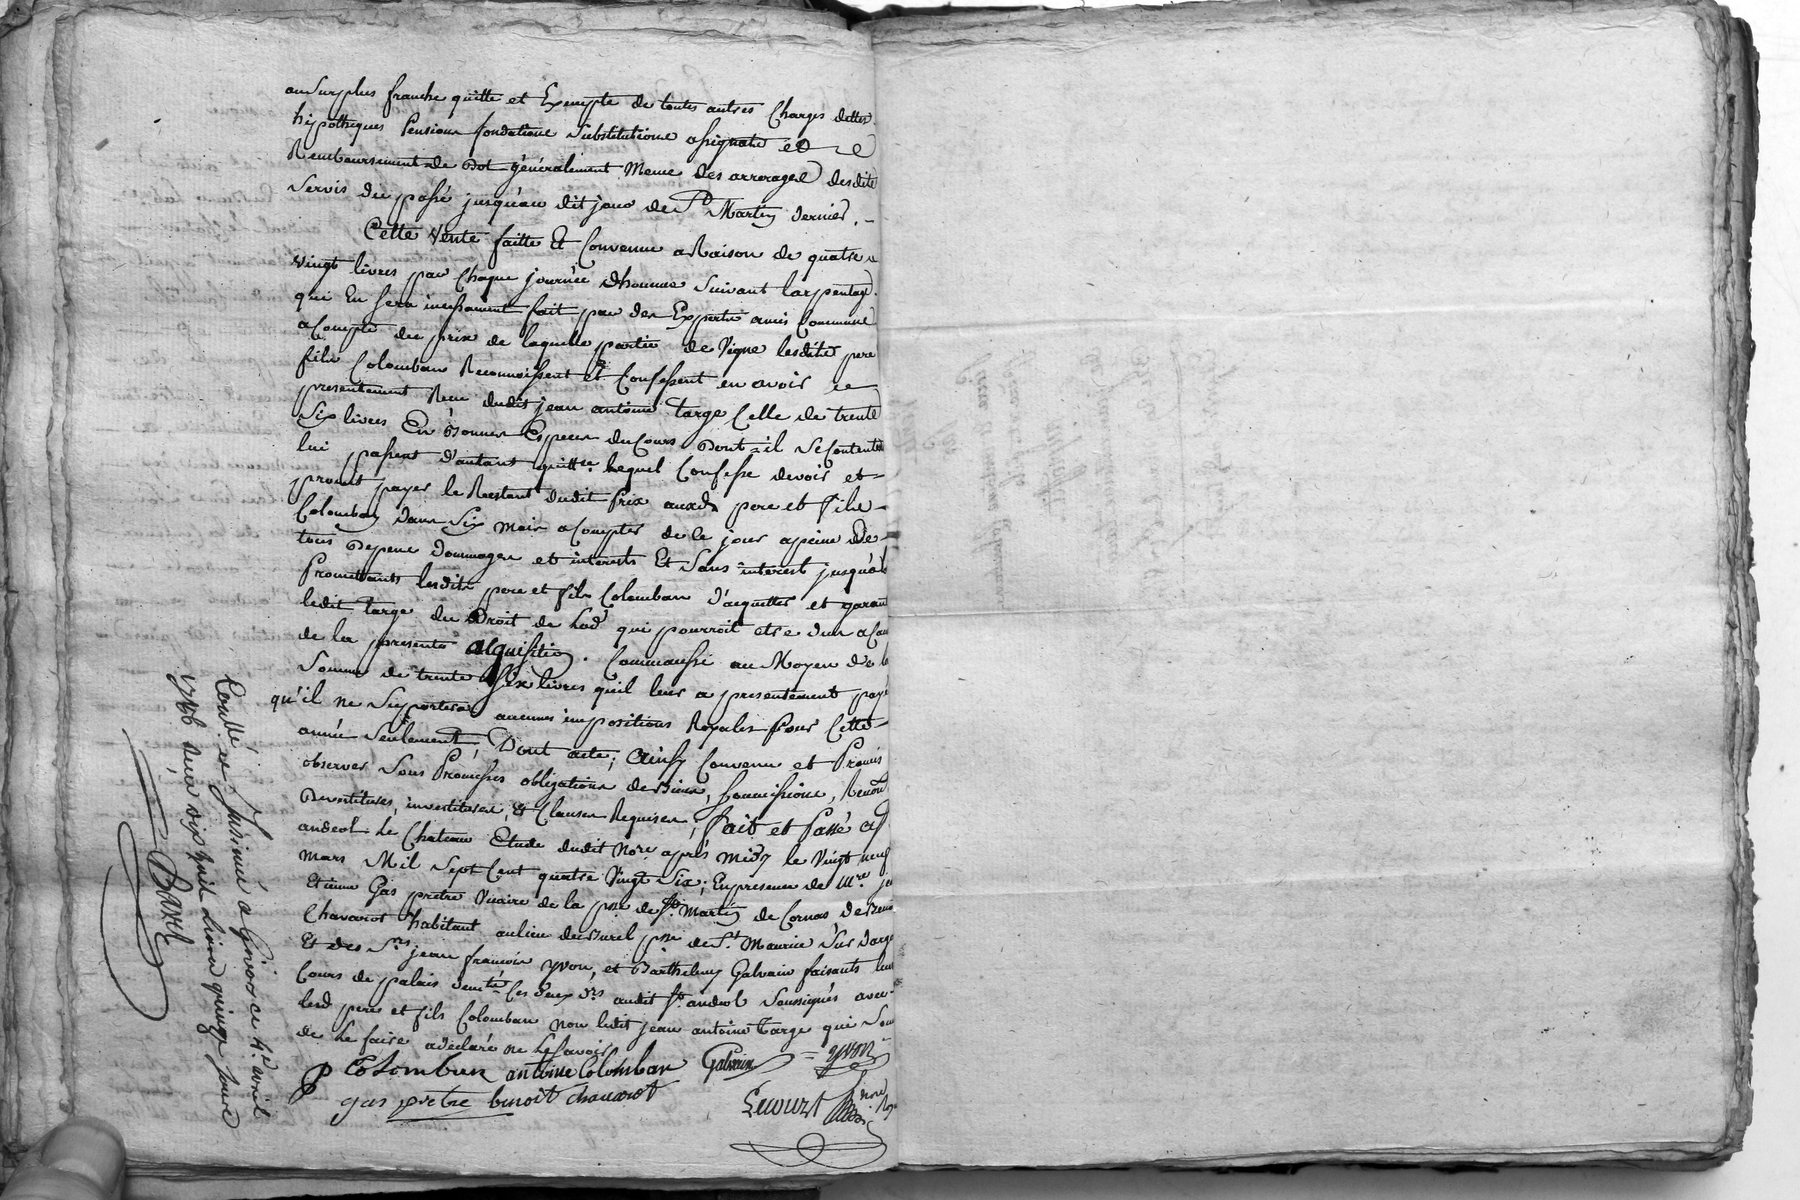 au Surplus franche quitte et Exempte de toutes autres Charges dettes
hipotheques Pensions fondations Substitutions assignats et
Remboursement de Dot généralement Meme des arrerages desdits
Servis du passé jusqu'au dit jour de St Martin dernier. -
Cette Vente faitte Et Convenue a Raison de quatre
vingt livres par Chaque journée dhomme Suivant larpentage
qui En Sera incessament fait par des Experts amis Communs
a Compte du prix de laquelle partie de Vigne lesdits pere
fils Colomban Reconnoissent et Confessent en avoir
presentement Reçu dudit jean antoine Targe Celle de trente
Six livres En Bonnes Especes du Cours Dont-il Se Contentent
lui passent d'autant quitte. Lequel Confesse devoir et
promet payer le Restant dudit Prix auxds pere et fils
Colomban dans Six mois a Compter de ce jour apeine De
tous Depens dommages et interests Et Sans interest jusqu'a
Promettants lesdits pere et fils Colomban d'acquitter et garant
ledit Targe du Droit de Lod qui pourroit etre du a Cau
de la presente acquisition. Comm'aussi au Moyen de la
Somme de trente Six livres quil leur a presentement payé
qu'il ne Suportera aucunes impositions Royales Pour Cette
année Seulement, Dont acte; Ainsy Convenu et Promis
observer Sous Promesses obligations de Biens, Soumissions, Renon
Devestitures, investitures, Et Clauses Requises; Fait et Passé a St
andeol Le Chateau Etude dudit Nore après midy le Vingt neuf
mars Mil Sept Cent quatre Vingt Six; En presence de Mre
Etienne Gas pretre Vicaire de la psse de St Martin de Cornas de Benoit
Chavarot habitant au lieu de Burel psse de St Maurice Sur dargo
Et des Srs jean francois Yvon, et Barthelemy Galvain faisants leur
Cours de palais Ces deux drs audit St andeol Soussignés avec
lesd peres et fils Colomban non ledit jean antoine Targe qui Som
de Le faire a declaré ne Le Savoir
P Colomban antoine Colomban Galvain yvon
gas pretre benoit chavarot
Lecourt nore
Controllé et Insinué a Givors ce 4e avril
1786 Reçu dix huit livres quinze sous
Borel